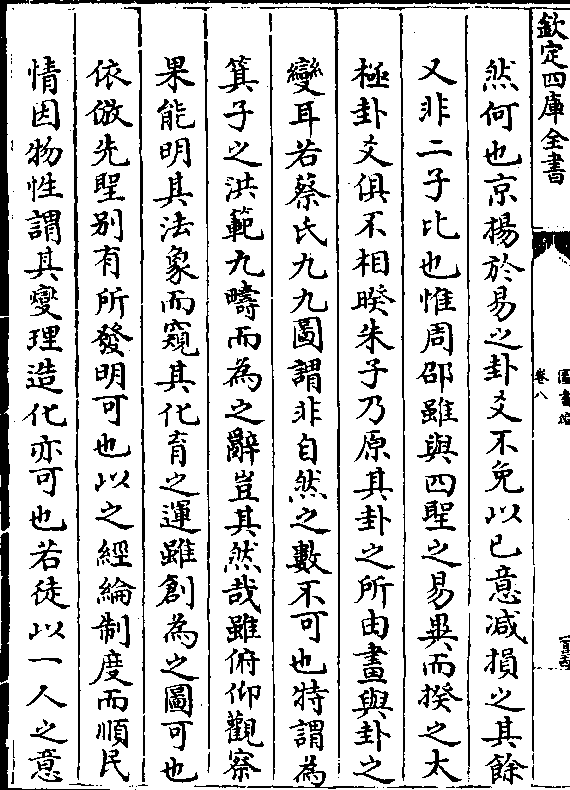 欽定四庫全書
卷八
然何也京揚於易之卦爻不免以已意減損之其餘
又非二子比也惟周邵雖與四聖之易異而揆之大
極卦爻俱不相暌朱子乃原其卦之所由畫與卦之
變耳若蔡氏九九圖謂非自然之數不可也特謂為
箕子之洪範九疇而為之辭豈其然哉雖俯仰觀察
果能明其法象而窺其化育之運雖創為之圖可也
依倣先聖别有所發明可也以之經綸制度而順民
情因物性謂其燮理造化亦可也若徒以一人之意